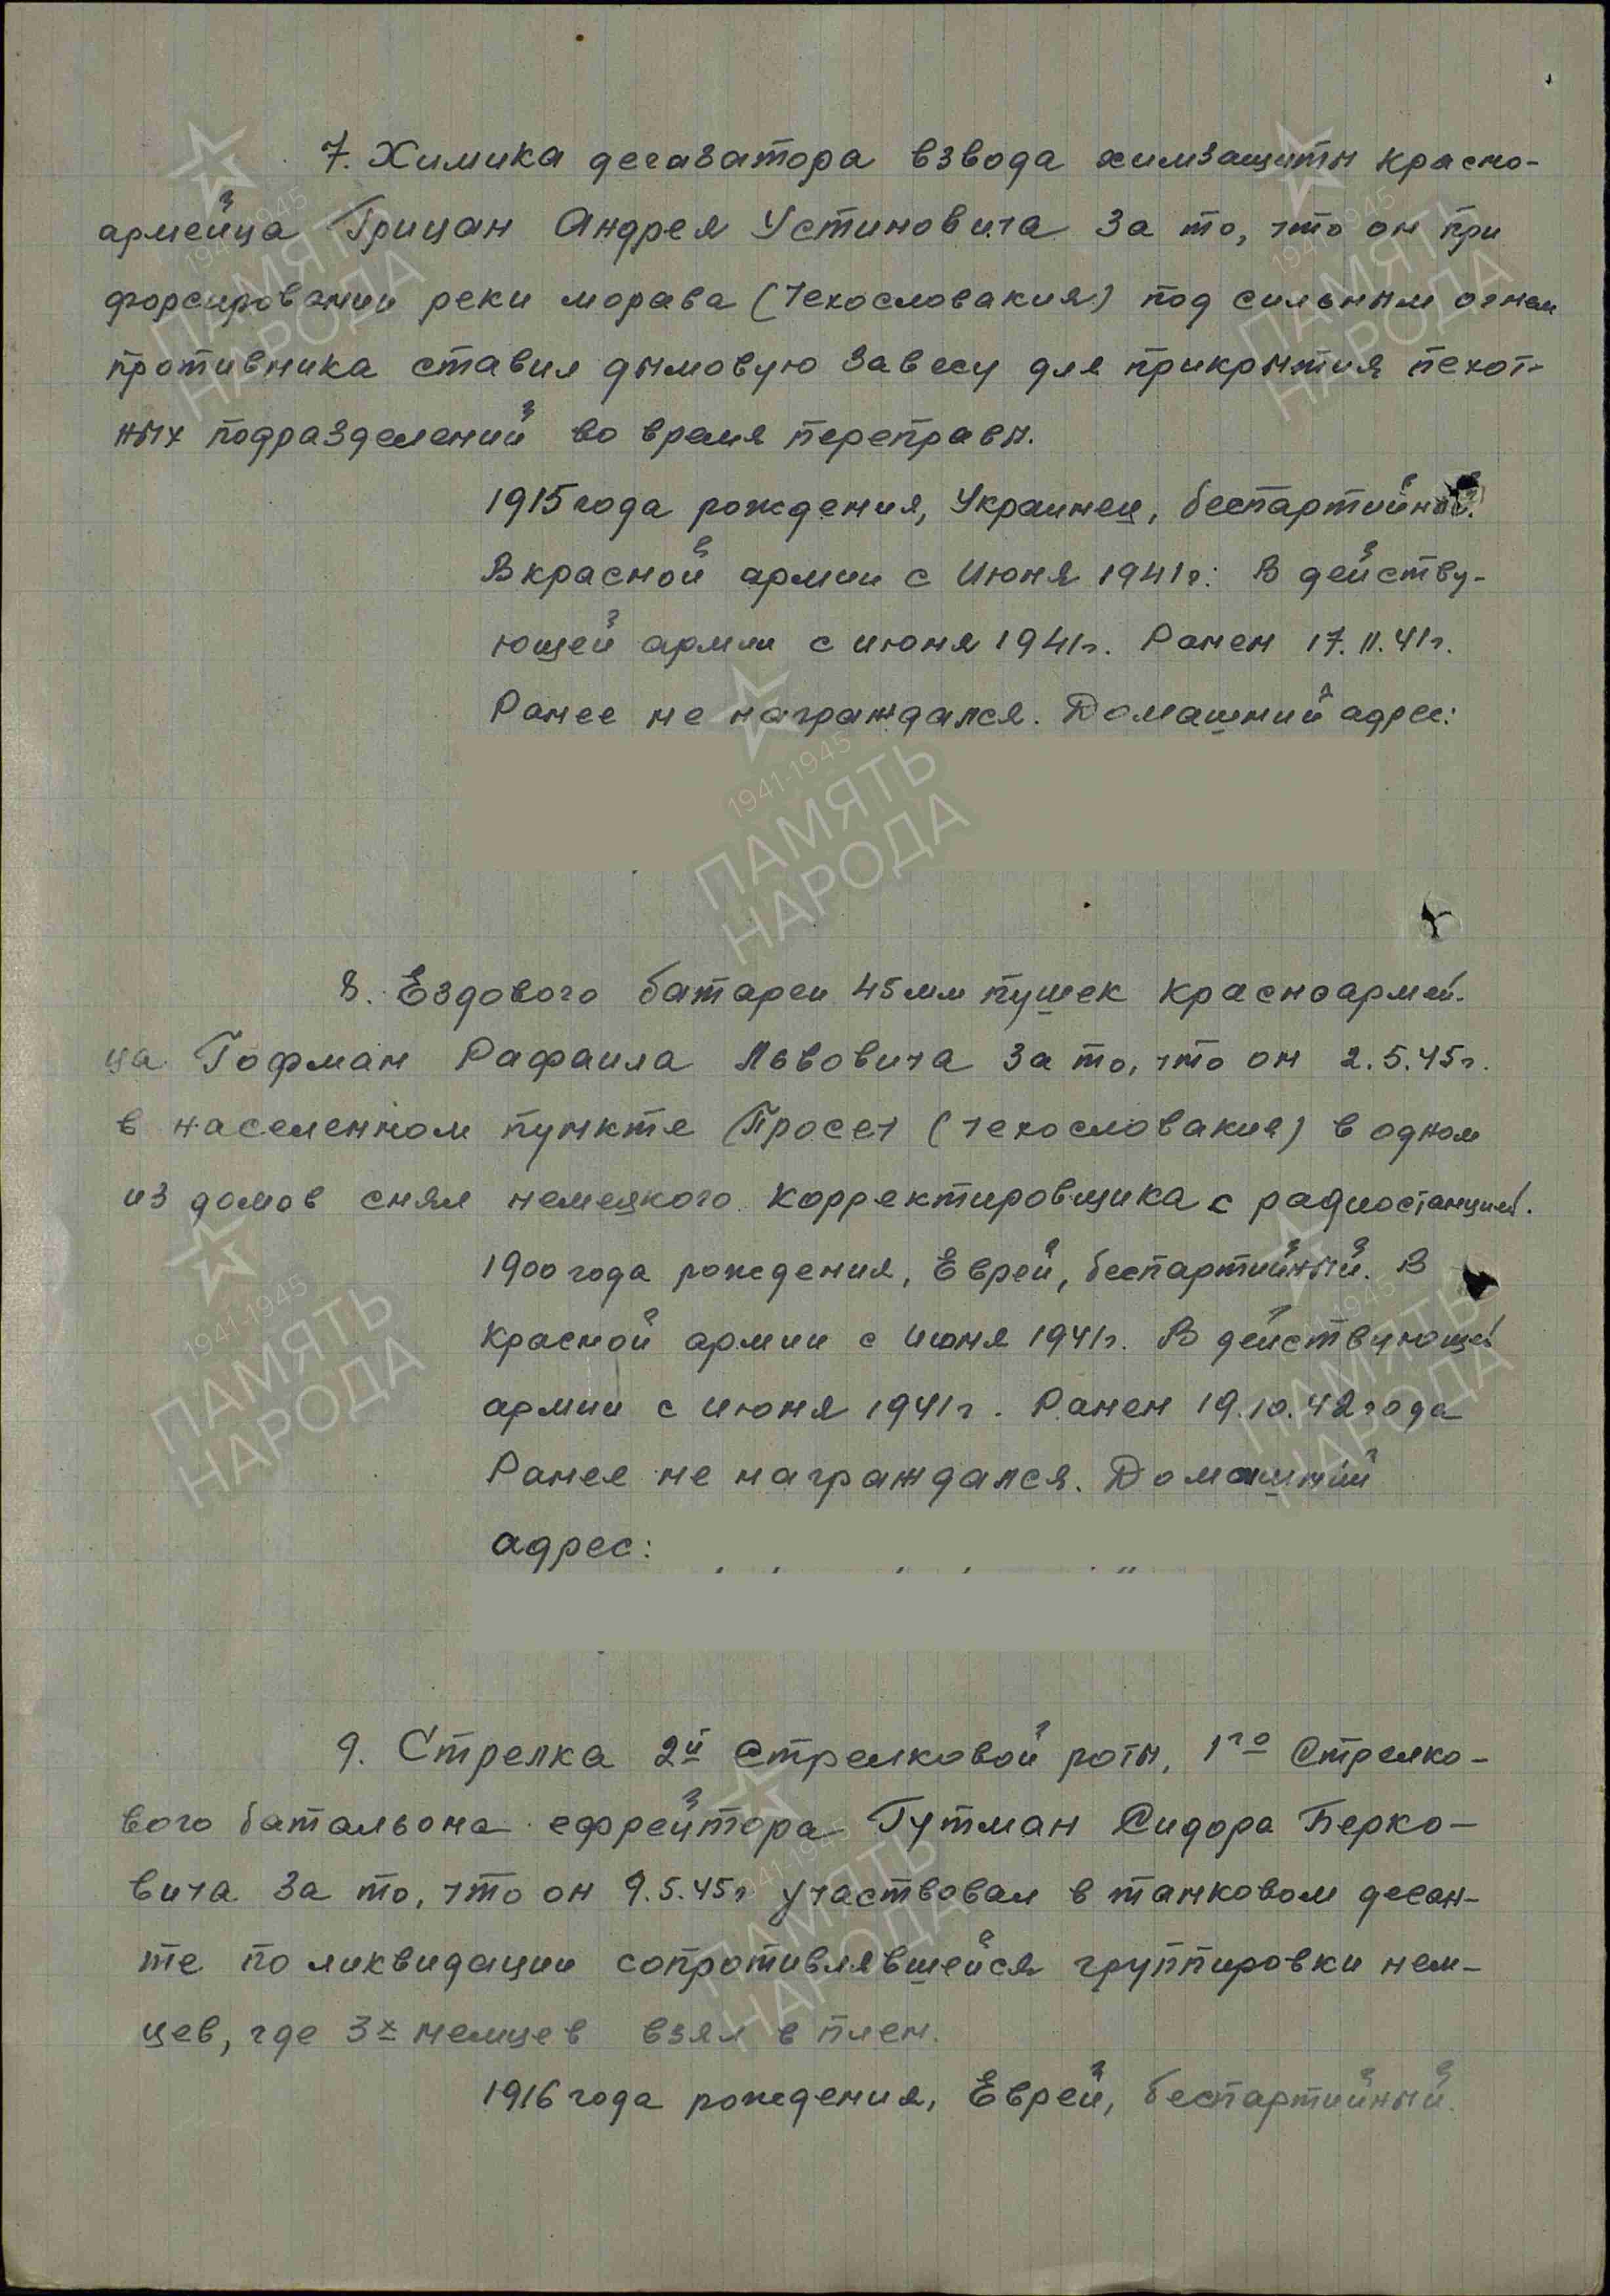 7. Химика дегазатора взвода химзащиты красно-
армейца Грицан Андрея Устиновича за то, что он при
форсировании реки морава (Чехословакия) под сильным огнем
противника ставил дымовую завесу для прикрытия пехот-
ных подразделений во время переправы.
1915 года рождения, Украинец, беспартийный.
В красной армии с Июня 1941г. В действу-
ющей армии с июня 1941г. Ранен 17.11.41г.
Ранее не награждался. Домашний адрес:
8. Ездового батареи 45мм пушек красноармей-
ца Гофман Рафаила Львовича за то, что он 2.5.45г.
в населенном пункте Просеч (Чехословакия) в одном
из домов снял немецкого корректировщика с радиостанцией.
1900 года рождения, Еврей, беспартийный. В
красной армии с июня 1941г. В действующей
армии с июня 1941г. Ранен 19.10.42 года
Ранее не награждался. Домашний
адрес:
9. Стрелка 2й стрелковой роты, 1го Стрелко-
вого батальона ефрейтора Гутман Сидора Берко-
вича за то, что он 9.5.45г участвовал в танковом десан-
те по ликвидации сопротивлявшейся группировки нем-
цев, где 3х немцев взял в плен.
1916 года рождения, Еврей, беспартийный.
1941-1945
ПАМЯТЬ
НАРОДА
1941-1945
ПАМЯТЬ
НАРОДА
1941-1945
ПАМЯТЬ
НАРОДА
1941-1945
ПАМЯТЬ
НАРОДА
1941-1945
ПАМЯТЬ
НАРОДА
1941-1945
ПАМЯТЬ
НАРОДА